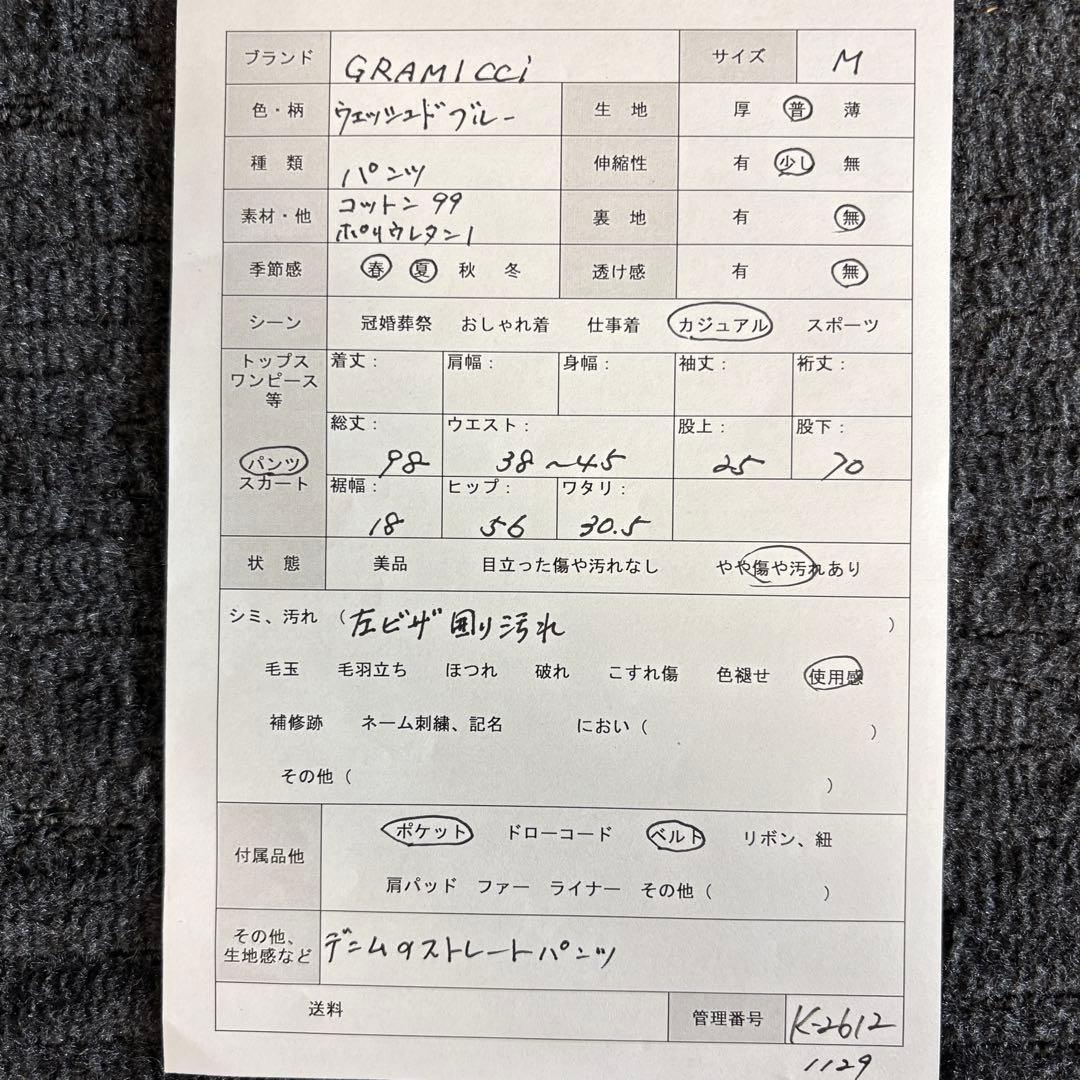 ブランド GRAMICCi サイズ M
色・柄 ウォッシュドブルー 生 地 厚 普 薄
種 類 パンツ 伸縮性 有 少し 無
素材・他 コットン 99
ポリウレタン1 裏 地 有 無
季節感 春 夏 秋 冬 透け感 有 無
シーン 冠婚葬祭 おしゃれ着 仕事着 カジュアル スポーツ
トップス
ワンピース
等
着丈: 肩幅: 身幅: 袖丈: 裄丈:
パンツ
スカート
総丈: ウエスト: 股上: 股下:
98 38〜45 25 70
裾幅: ヒップ: ワタリ:
18 56 30.5
状 態 美品 目立った傷や汚れなし やや傷や汚れあり
シミ、汚れ ( 左ヒザ囲り汚れ )
毛玉 毛羽立ち ほつれ 破れ こすれ傷 色褪せ 使用感
補修跡 ネーム刺繍、記名 におい ( )
その他 ( )
付属品他 ポケット ドローコード ベルト リボン、紐
肩パッド ファー ライナー その他 ( )
その他、
生地感など デニムのストレートパンツ
送料 管理番号 K-2612
1129